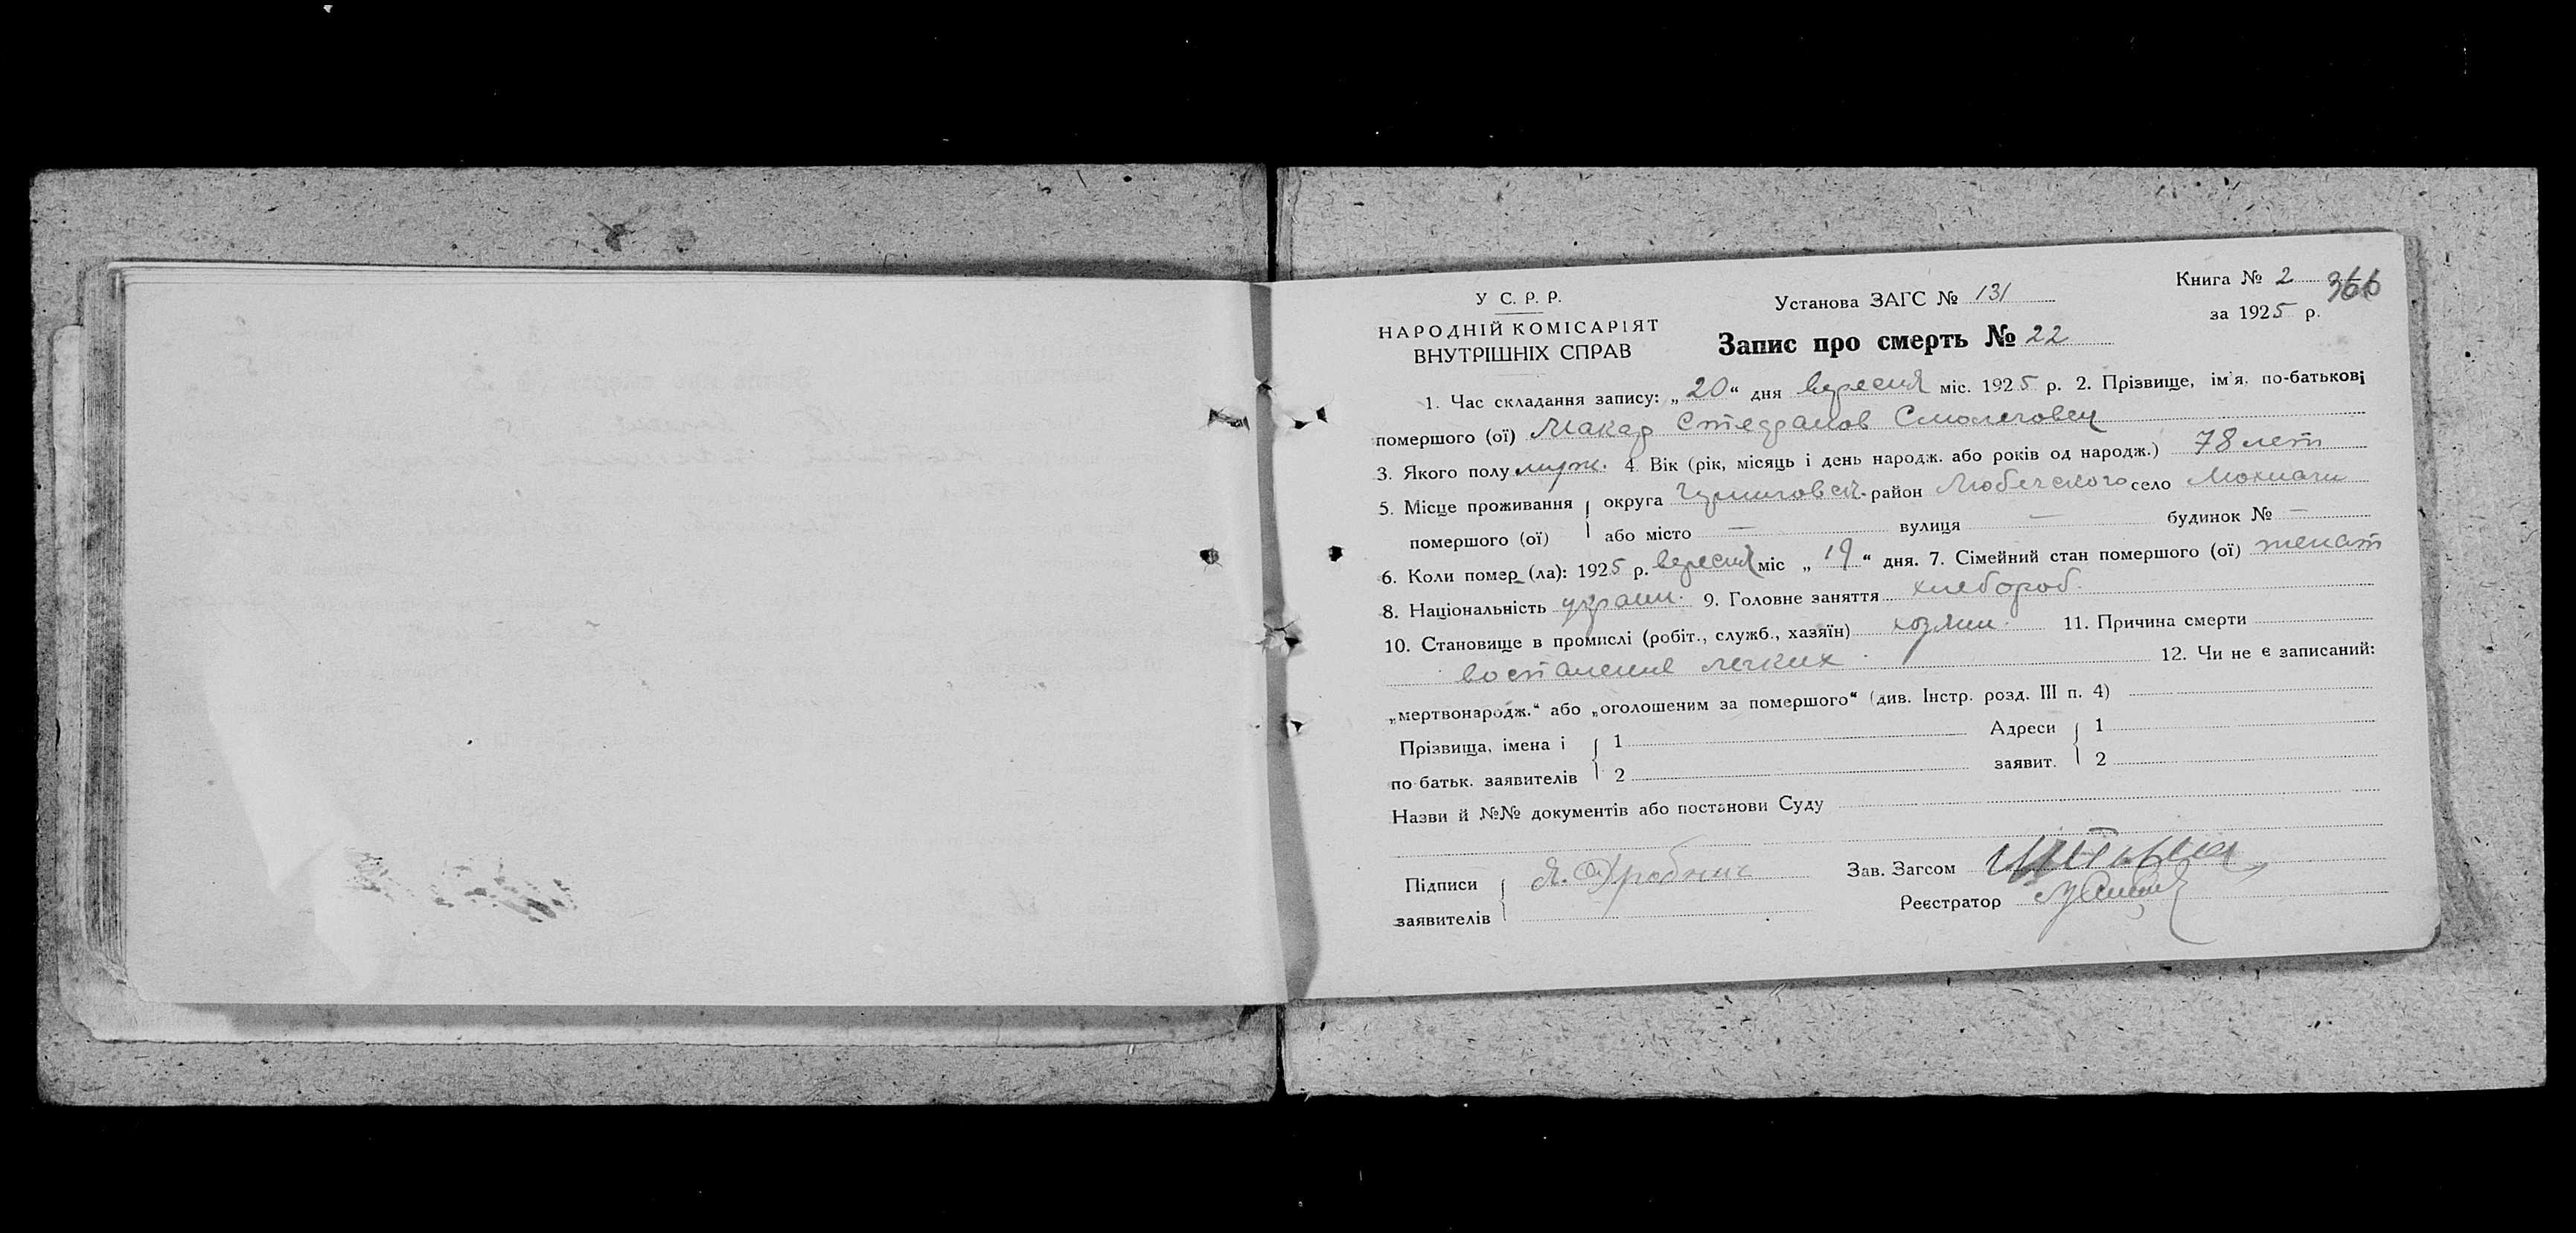 У С. Р. Р.
НАРОДНІЙ КОМІСАРІЯТ
ВНУТРІШНІХ СПРАВ
Установа ЗАГС № 131
Книга № 2 366
за 1925 р.
Запис про смерть № 22
1. Час складання запису: „20“ дня вересня міс. 1925 р. 2. Прізвище, ім'я, по-батькові
помершого (ої) Макар Стефанов
3. Якого полу муж. 4. Вік (рік, місяць і день народж. або років од народж.) 78 лет
5. Місце проживання округа район Любечского село Мохначи
помершого (ої) або місто — вулиця — будинок № —
6. Коли помер (ла): 1925 р. вересня міс „19“ дня. 7. Сімейний стан помершого (ої) женат
8. Національність украин. 9. Головне заняття хлебороб.
10. Становище в промислі (робіт., служб., хазяїн) хозяин. 11. Причина смерти
воспаление легких. 12. Чи не є записаний:
„мертвонародж.“ або „оголошеним за помершого“ (див. Інстр. розд. III п. 4)
Прізвища, імена і 1 Адреси 1
по батьк. заявителів 2 заявит. 2
Назви й №№ документів або постанови Суду
Підписи Зав. Загсом
заявителів Реєстратор